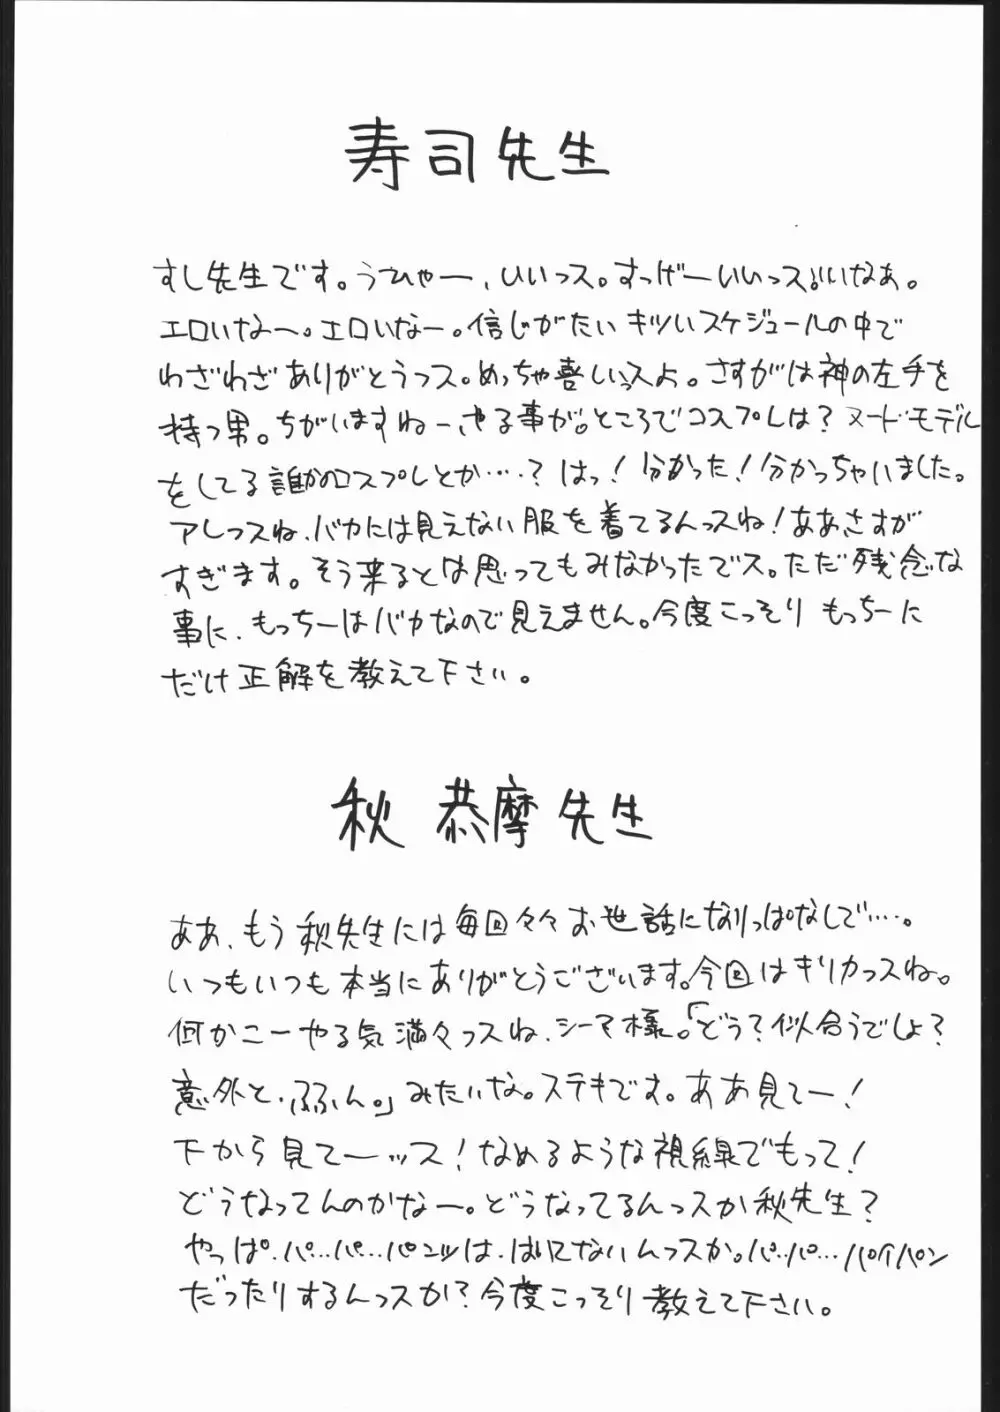 寿司先生
すし先生です。うひゃー、いいっス。すっげーいいっス。いいなぁ。
エロいなー。エロいなー。信じがたいキツいスケジュールの中で
わざわざありがとうっス。めっちゃ喜しいっスよ。さすがは神の左手を
持つ男。ちがいますねーやる事が。ところでコスプレは？ヌードモデル
をしてる誰かのコスプレとか….？はっ！分かった！分かっちゃいました。
アレっスね、バカには見えない服を着てるんっスね！ああさすが
すぎます。そう来るとは思ってもみなかったでス。ただ残念な
事に、もっちーはバカなので見えません。今度こっそりもっちーに
だけ正解を教えて下さい。
秋 恭摩先生
ああ、もう秋先生には毎回々々お世話になりっぱなしで….。
いつもいつも本当にありがとうございます。今回はキリカっスね。
何かこーやる気満々っスね、シーマ様。「どう？似合うでしょ？
意外と、ふふん。」みたいな。ステキです。ああ見てー！
下から見てーッス！なめるような視線でもって！
どうなってんのかなー。どうなってるんっスか秋先生？
やっぱ、パ…パ…パンツは、はいてないんっスか。パ…パ…パイパン
だったりするんっスか？今度こっそり教えて下さい。